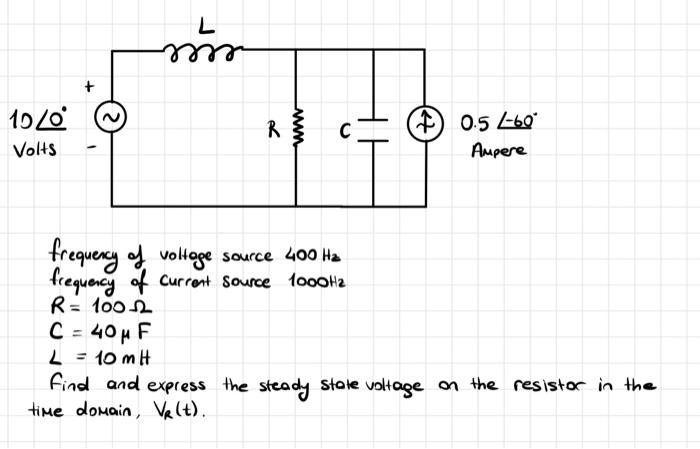 L
+
10∠0°
Volts
-
R
C
0.5 ∠-60°
Ampere
frequency of voltage source 400 Hz
frequency of current source 1000Hz
R = 100 Ω
C = 40 μF
L = 10 mH
find and express the steady state voltage on the resistor in the
time domain, VR(t).